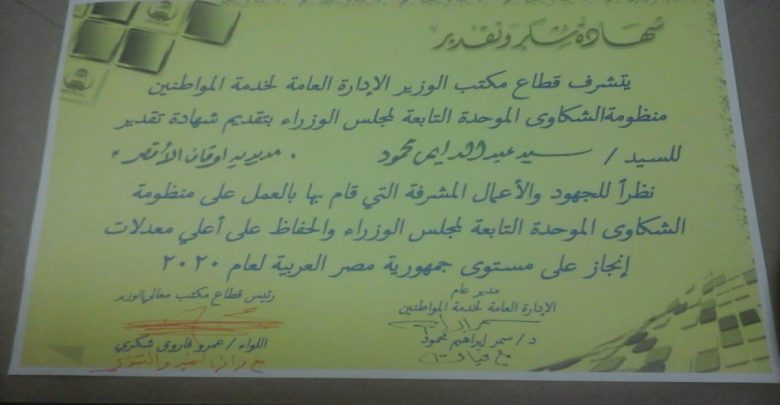 شهادة شكر وتقدير
يتشرف قطاع مكتب الوزير الإدارة العامة لخدمة المواطنين
منظومة الشكاوى الموحدة التابعة لمجلس الوزراء بتقديم شهادة تقدير
للسيد / سيد عبد الدايم محمود . مديرية اوقاف الأقصر
نظراً للجهود والأعمال المشرفة التي قام بها بالعمل على منظومة
الشكاوى الموحدة التابعة لمجلس الوزراء والحفاظ على أعلي معدلات
إنجاز على مستوى جمهورية مصر العربية لعام ٢٠٢٠
مدير عام
الإدارة العامة لخدمة المواطنين
د/ سمر ابراهيم محمود
رئيس قطاع مكتب معالي الوزير
اللواء / عمرو فاروق شكري